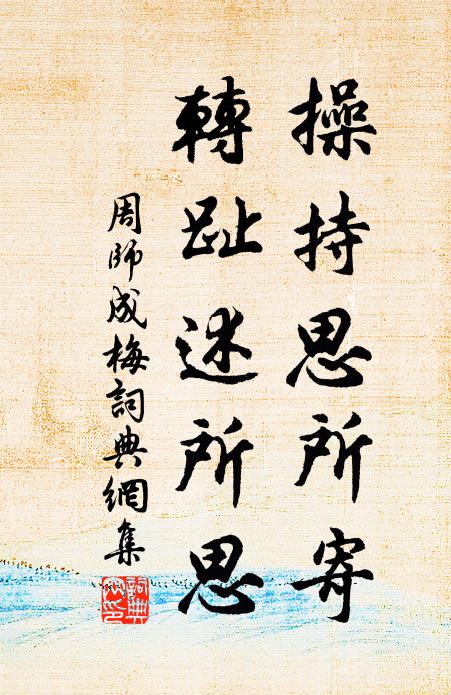 操持思所寄
轉趾迷所思
周師成梅詞典網集